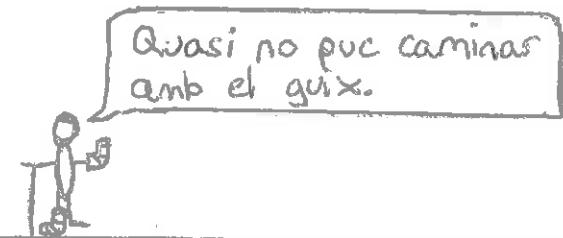 Quasi no puc caminar
amb el guix.